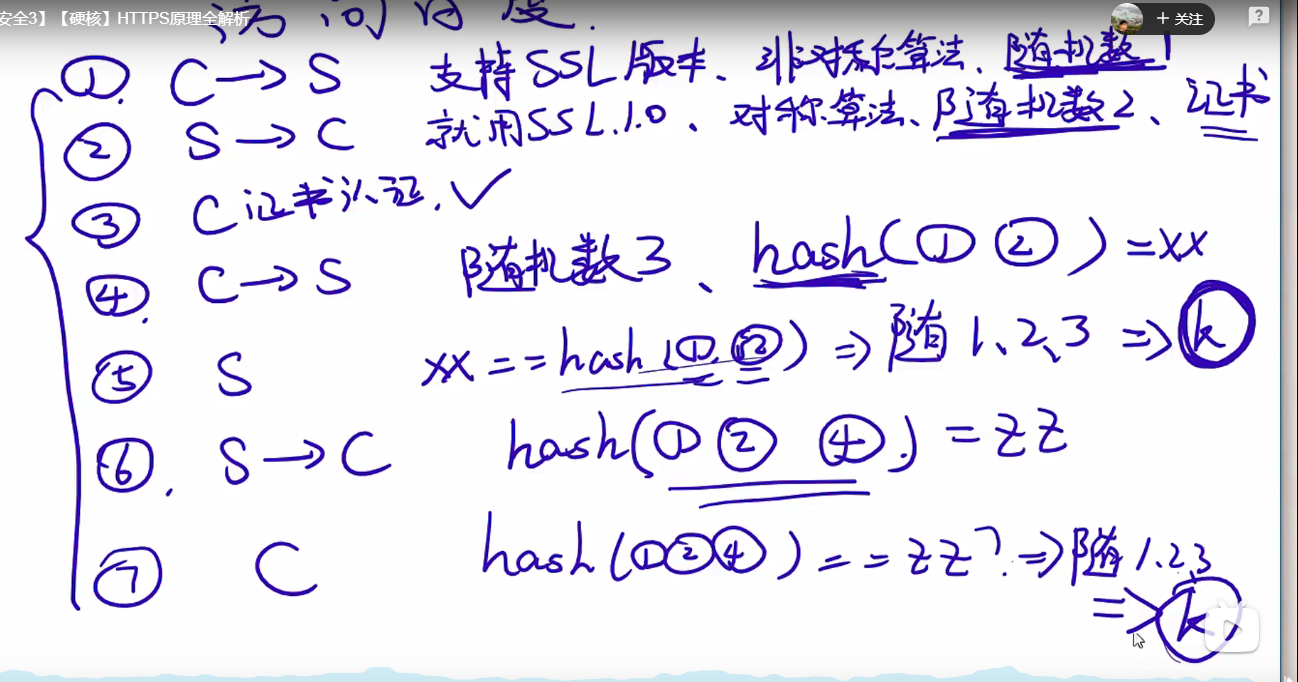 安全3】【硬核】HTTPS原理全解析
+ 关注
访问百度.
① C→S 支持SSL版本、非对称算法、随机数1
② S→C 就用SSL.1.0、对称算法、随机数2、证书
③ C证书认证.✓
④. C→S 随机数3、hash(①②)=xx
⑤ S xx==hash(①,②)⇒随1、2、3⇒k
⑥. S→C hash(①②④.)=zz
⑦ C hash(①②④)==zz?.⇒随1、2、3
⇒k